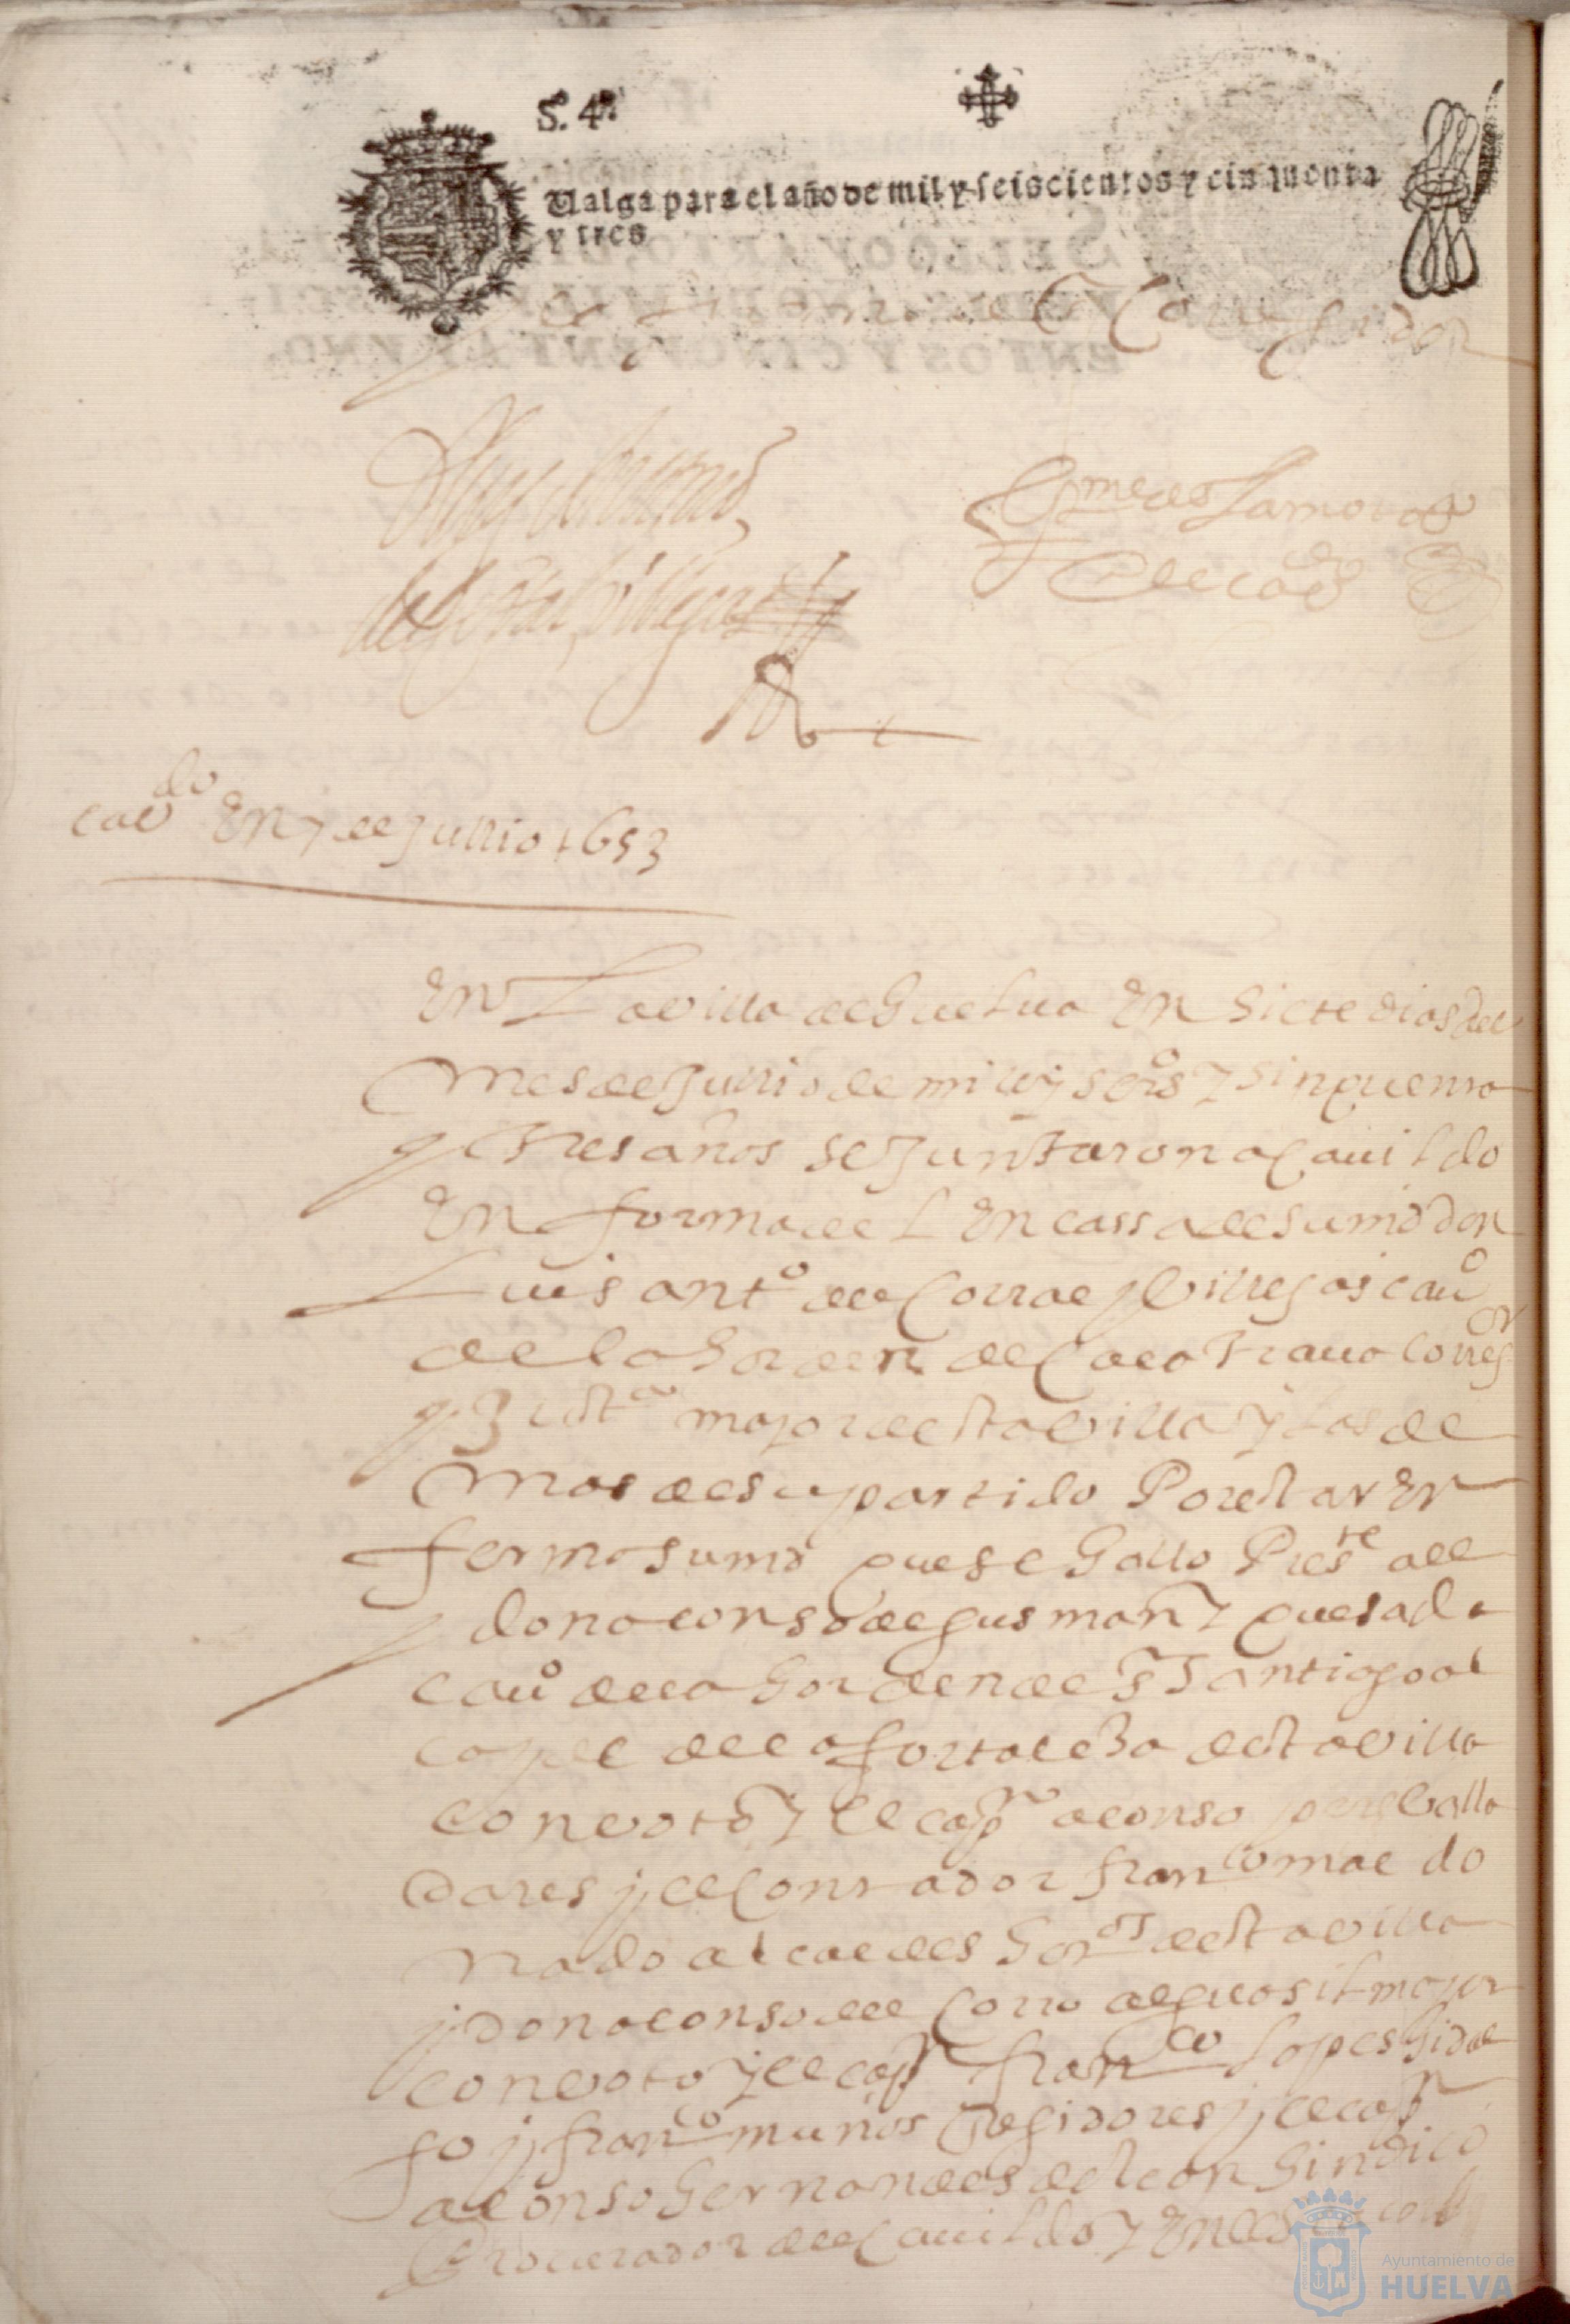 S. 4º
Valga para el año de mil y seiscientos y cinquenta
y tres
SELLO QVARTO,
ENTOS Y CINQVENTA Y VNO.
El Corregidor
cavdo En 7 de Jullio 1653
En La villa de Guelua En Siete dias del
Mes de Jullio de mill y seisos y sinquenta
y tres años se Juntaron a Cauildo
En forma de L En cassa de su md don
Luis anto del Corral y Villegas cauo
de la horden de Calatraua Correg or
y Justa mayor desta villa y las de
Mas de su partido Por estar En
fermo su md que se hallo Preste del
don alonso de gusman y quesada
cauo de la horden de S Santiago al
cayde de la fortaleza desta villa
con voto y el capn alonso peres Valla
dares y el Contador franco mal do
nado alcaldes horos desta villa
y don alonso del Corro alguasil mayor
con voto y el capn franco Lopes hidal
go y franco muños Regidores y el capn
alonso hernandes de leon Sindico
Procurador del Cauildo y En el
Ayuntamiento de
HUELVA